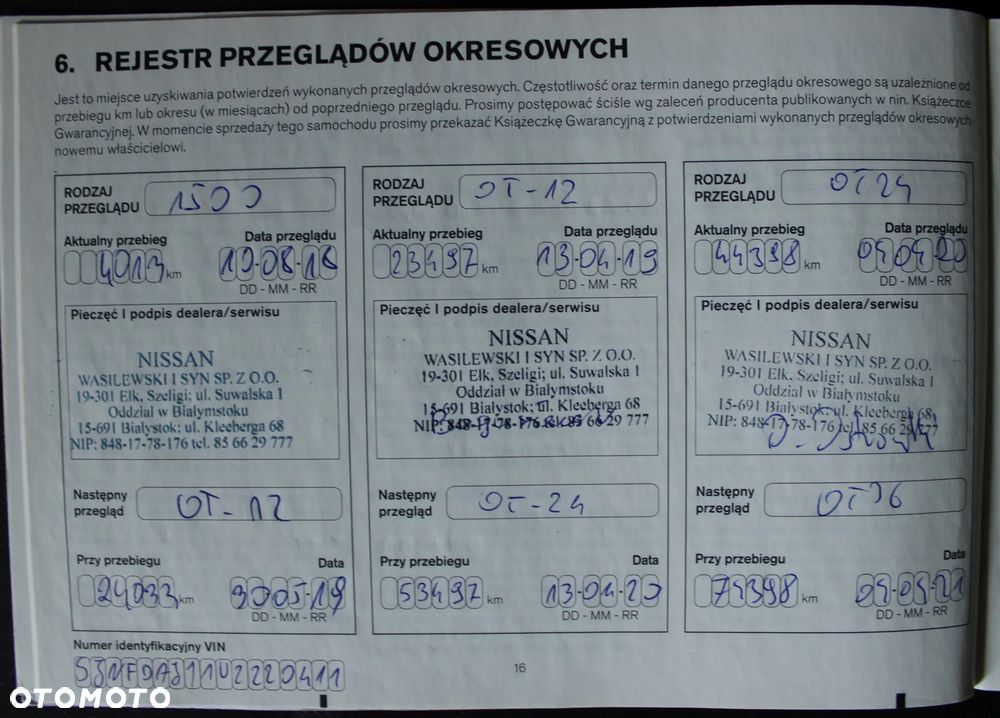 6. REJESTR PRZEGLĄDÓW OKRESOWYCH
Jest to miejsce uzyskiwania potwierdzeń wykonanych przeglądów okresowych. Częstotliwość oraz termin danego przeglądu okresowego są uzależnione od
przebiegu km lub okresu (w miesiącach) od poprzedniego przeglądu. Prosimy postępować ściśle wg zaleceń producenta publikowanych w nin. Książeczce
Gwarancyjnej. W momencie sprzedaży tego samochodu prosimy przekazać Książeczkę Gwarancyjną z potwierdzeniami wykonanych przeglądów okresowych
nowemu właścicielowi.
RODZAJ
PRZEGLĄDU 1500
Aktualny przebieg Data przeglądu
4013 km 10-08-18
DD - MM - RR
Pieczęć I podpis dealera/serwisu
NISSAN
WASILEWSKI I SYN SP. Z O.O.
19-301 Ełk, Szeligi; ul. Suwalska 1
Oddział w Białymstoku
15-691 Białystok; ul. Kleeberga 68
NIP: 848-17-78-176 tel. 85 66 29 777
Następny
przegląd OT-12
Przy przebiegu Data
24033 km 30-05-19
DD - MM - RR
RODZAJ
PRZEGLĄDU OT-12
Aktualny przebieg Data przeglądu
23497 km 13-04-19
DD - MM - RR
Pieczęć I podpis dealera/serwisu
NISSAN
WASILEWSKI I SYN SP. Z O.O.
19-301 Ełk, Szeligi; ul. Suwalska 1
Oddział w Białymstoku
15-691 Białystok; ul. Kleeberga 68
NIP: 848-17-78-176 tel. 85 66 29 777
Następny
przegląd OT-24
Przy przebiegu Data
53497 km 13-04-20
DD - MM - RR
RODZAJ
PRZEGLĄDU OT24
Aktualny przebieg Data przeglądu
44398 km
DD - MM - RR
Pieczęć I podpis dealera/serwisu
NISSAN
WASILEWSKI I SYN SP. Z O.O.
19-301 Ełk, Szeligi; ul. Suwalska 1
Oddział w Białymstoku
15-691 Białystok; ul. Kleeberga 68
NIP: 848-17-78-176 tel. 85 66 29 777
Następny
przegląd OT36
Przy przebiegu Data
74398 km
DD - MM - RR
Numer identyfikacyjny VIN
SJNFDAJ11U2220411
16
OTOMOTO